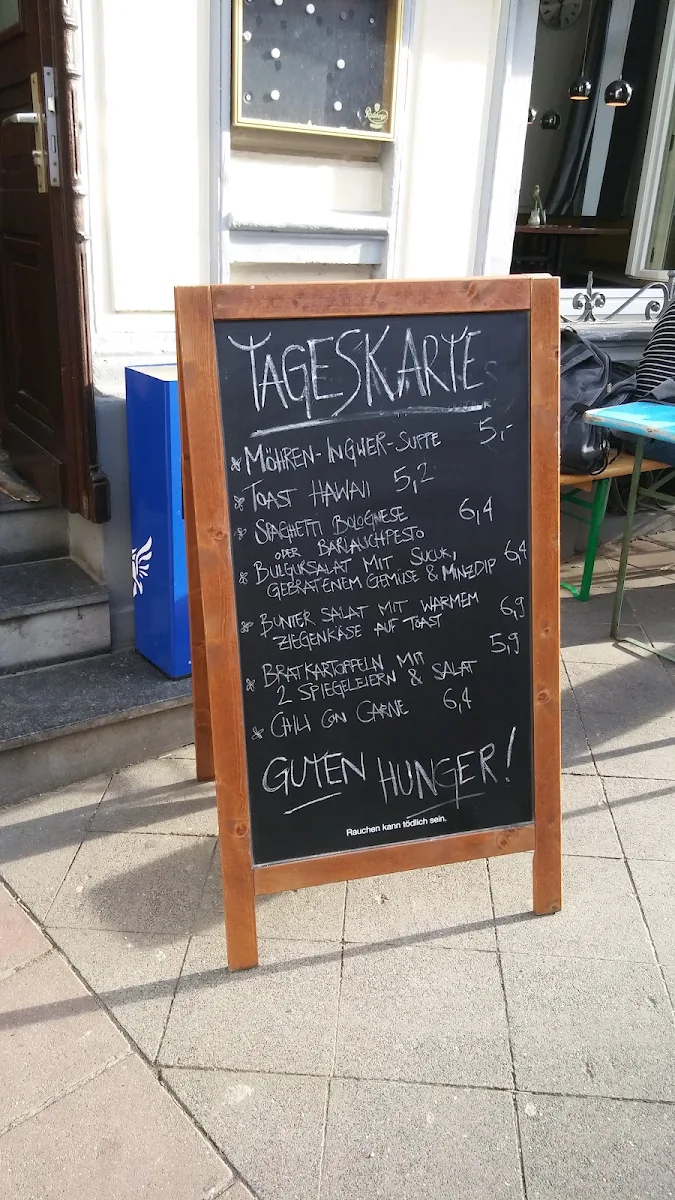 Radeberger
TAGESKARTE
MÖHREN-INGWER-SUPPE 5,-
TOAST HAWAII 5,2
SPAGHETTI BOLOGNESE 6,4
ODER BÄRLAUCHPESTO
BULGURSALAT MIT SUCUK, 6,4
GEBRATENEM GEMÜSE & MINZDIP
BUNTER SALAT MIT WARMEM 6,9
ZIEGENKÄSE AUF TOAST
BRATKARTOFFELN MIT 5,9
2 SPIEGELEIERN & SALAT
CHILI CON CARNE 6,4
GUTEN HUNGER!
Rauchen kann tödlich sein.